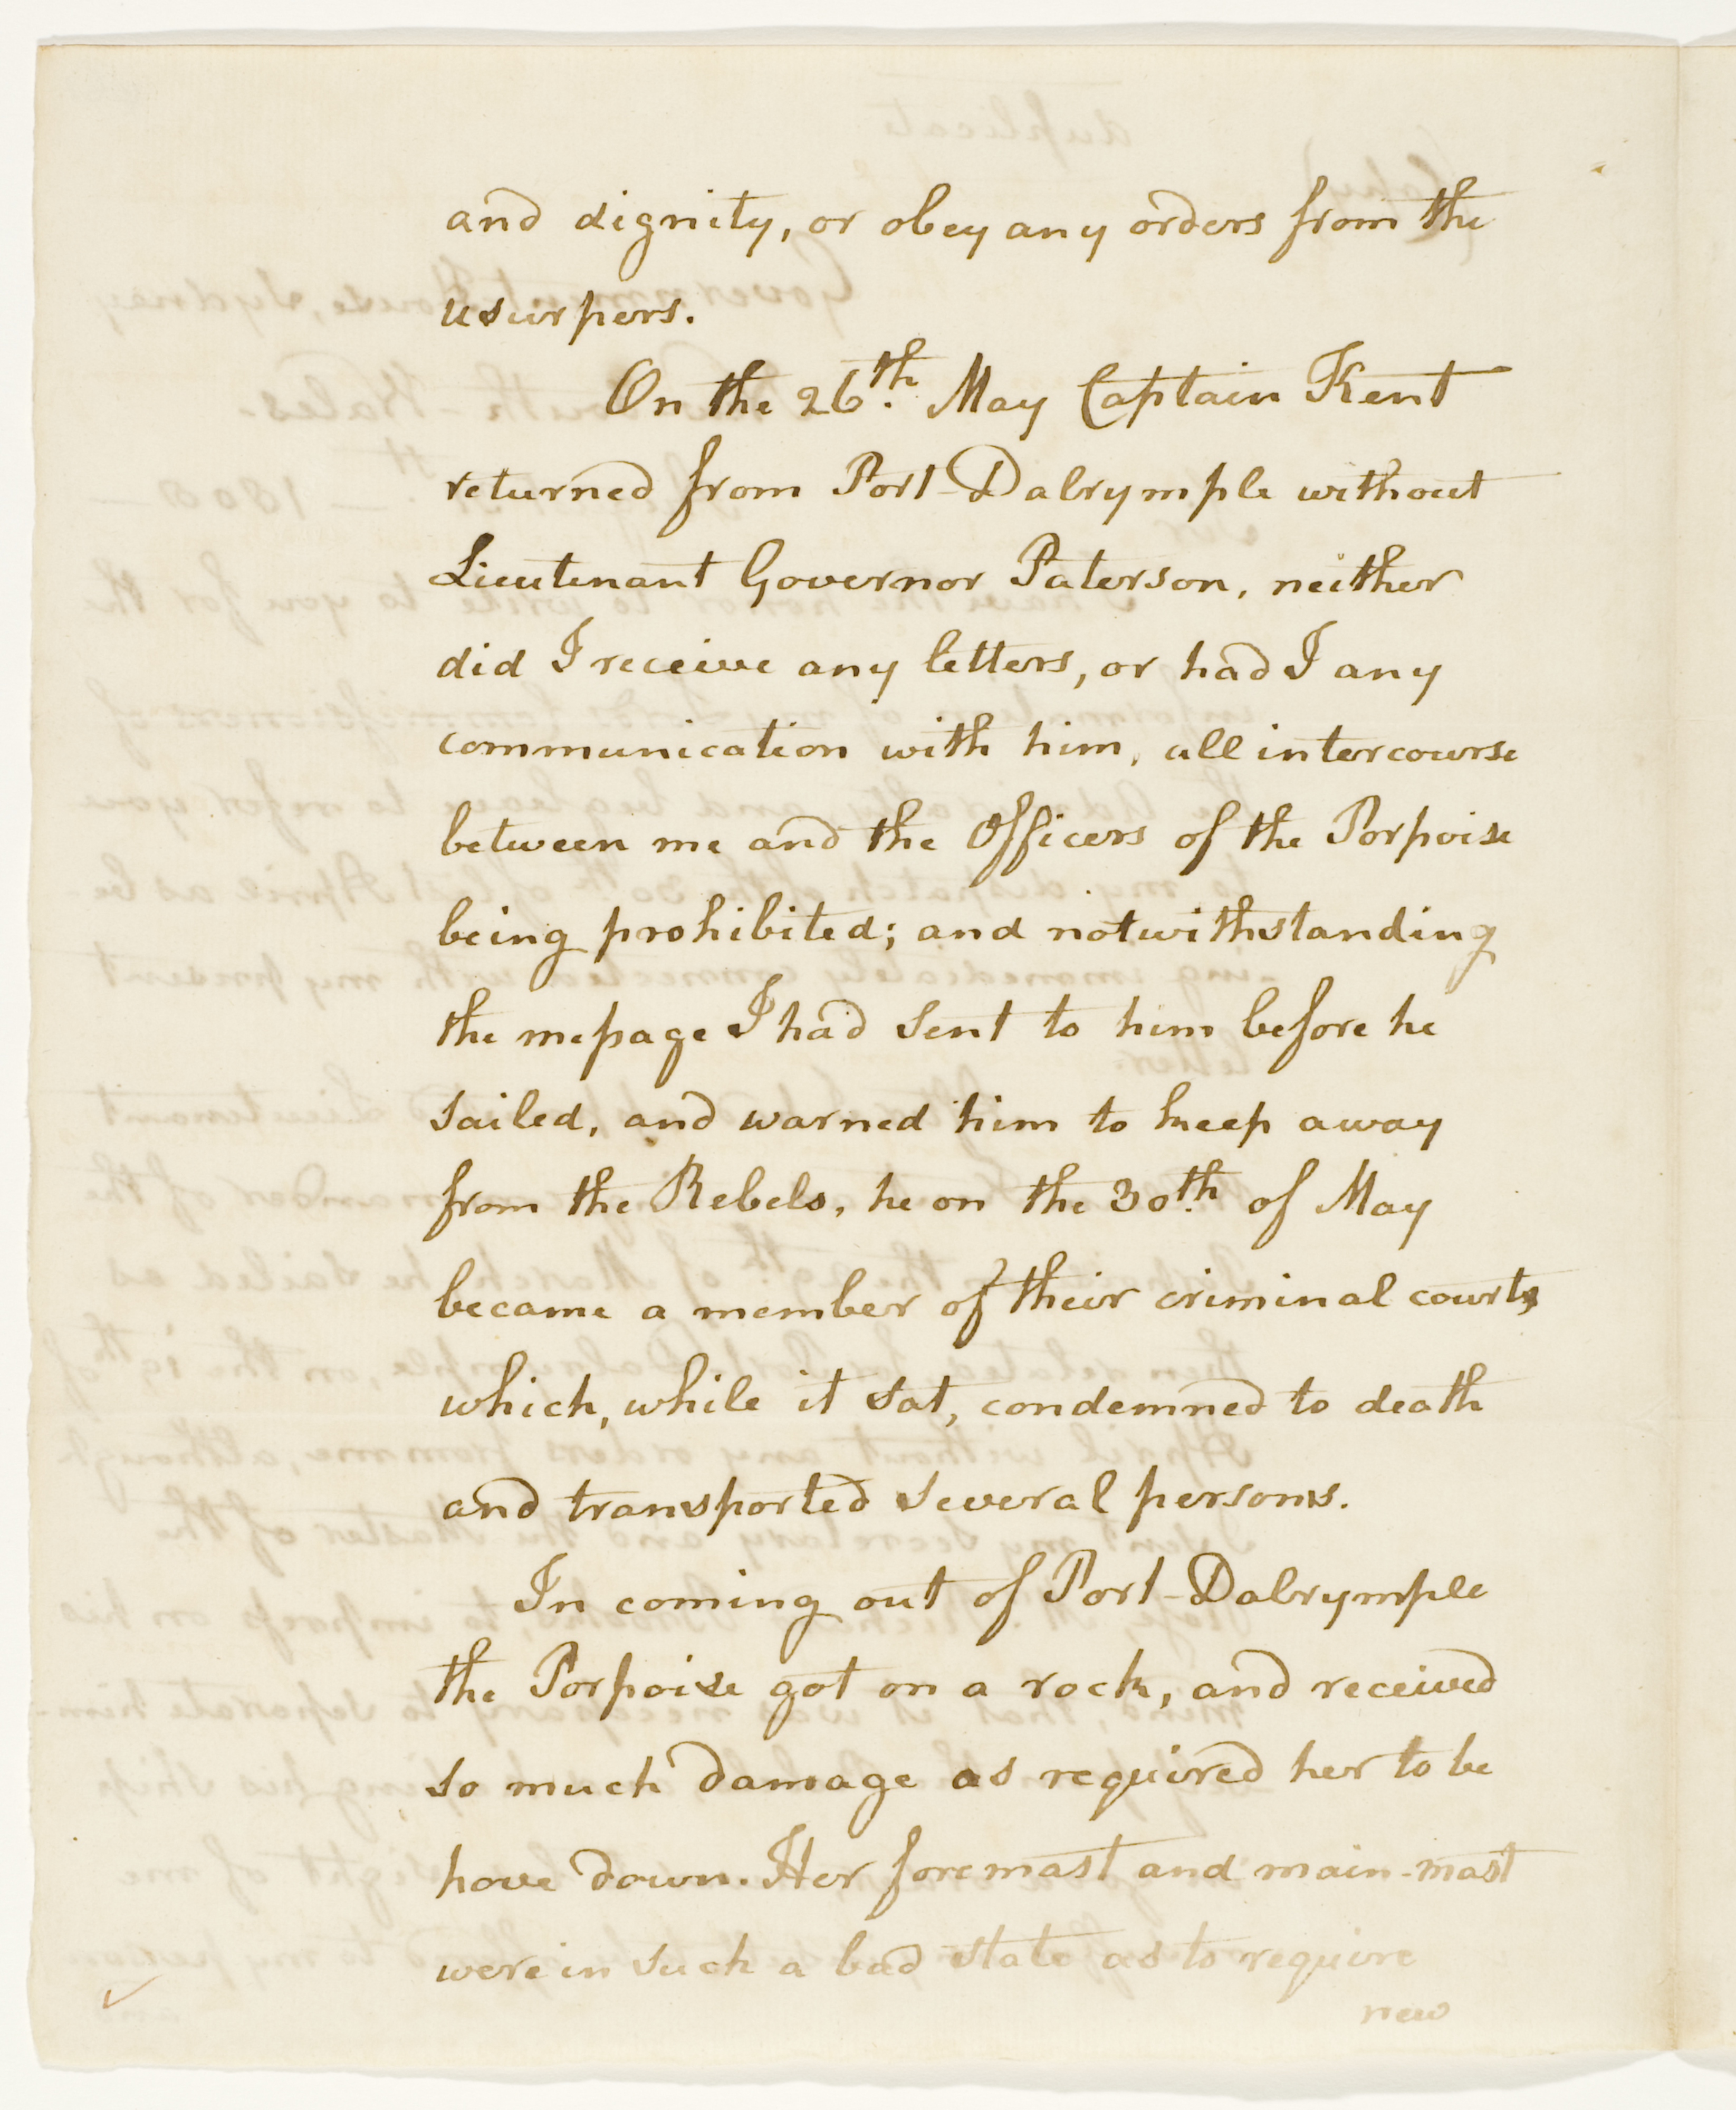 and dignity, or obey any orders from the
usurpers.
On the 26th. May Captain Kent
returned from Port-Dalrymple without
Lieutenant Governor Paterson, neither
did I receive any letters, or had I any
communication with him, all intercourse
between me and the Officers of the Porpoise
being prohibited; and notwithstanding
the message I had sent to him before he
sailed, and warned him to keep away
from the Rebels, he on the 30th. of May
became a member of their criminal courts,
which, while it sat, condemned to death
and transported several persons.
In coming out of Port-Dalrymple
the Porpoise got on a rock, and received
so much damage as required her to be
hove down. Her foremast and main-mast
were in such a bad state as to require
new